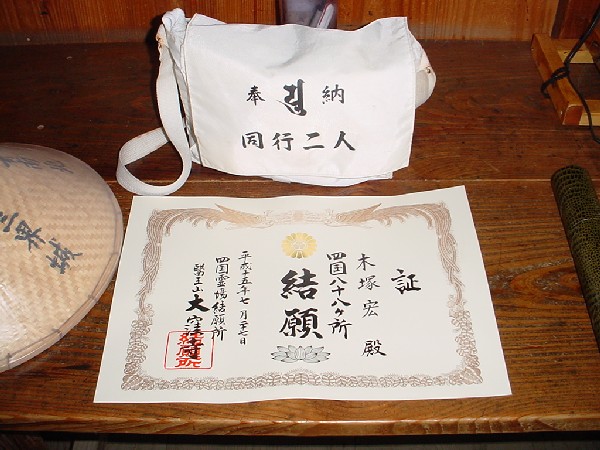 奉 納
同行二人
証
木塚宏殿
四国八十八ヶ所
結願
平成十五年七月二十七日
四国霊場結願所
醫王山大窪寺